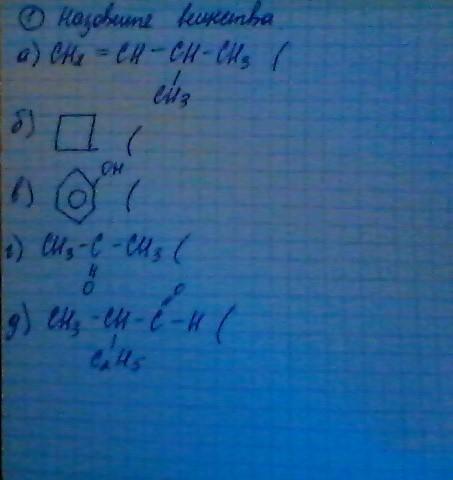 ① Назовите вещества
а) CH2 = CH - CH - CH3 (
CH3
б) (
в) OH (
г) CH3 - C - CH3 (
O
д) CH3 - CH - C - H (
O
C2H5